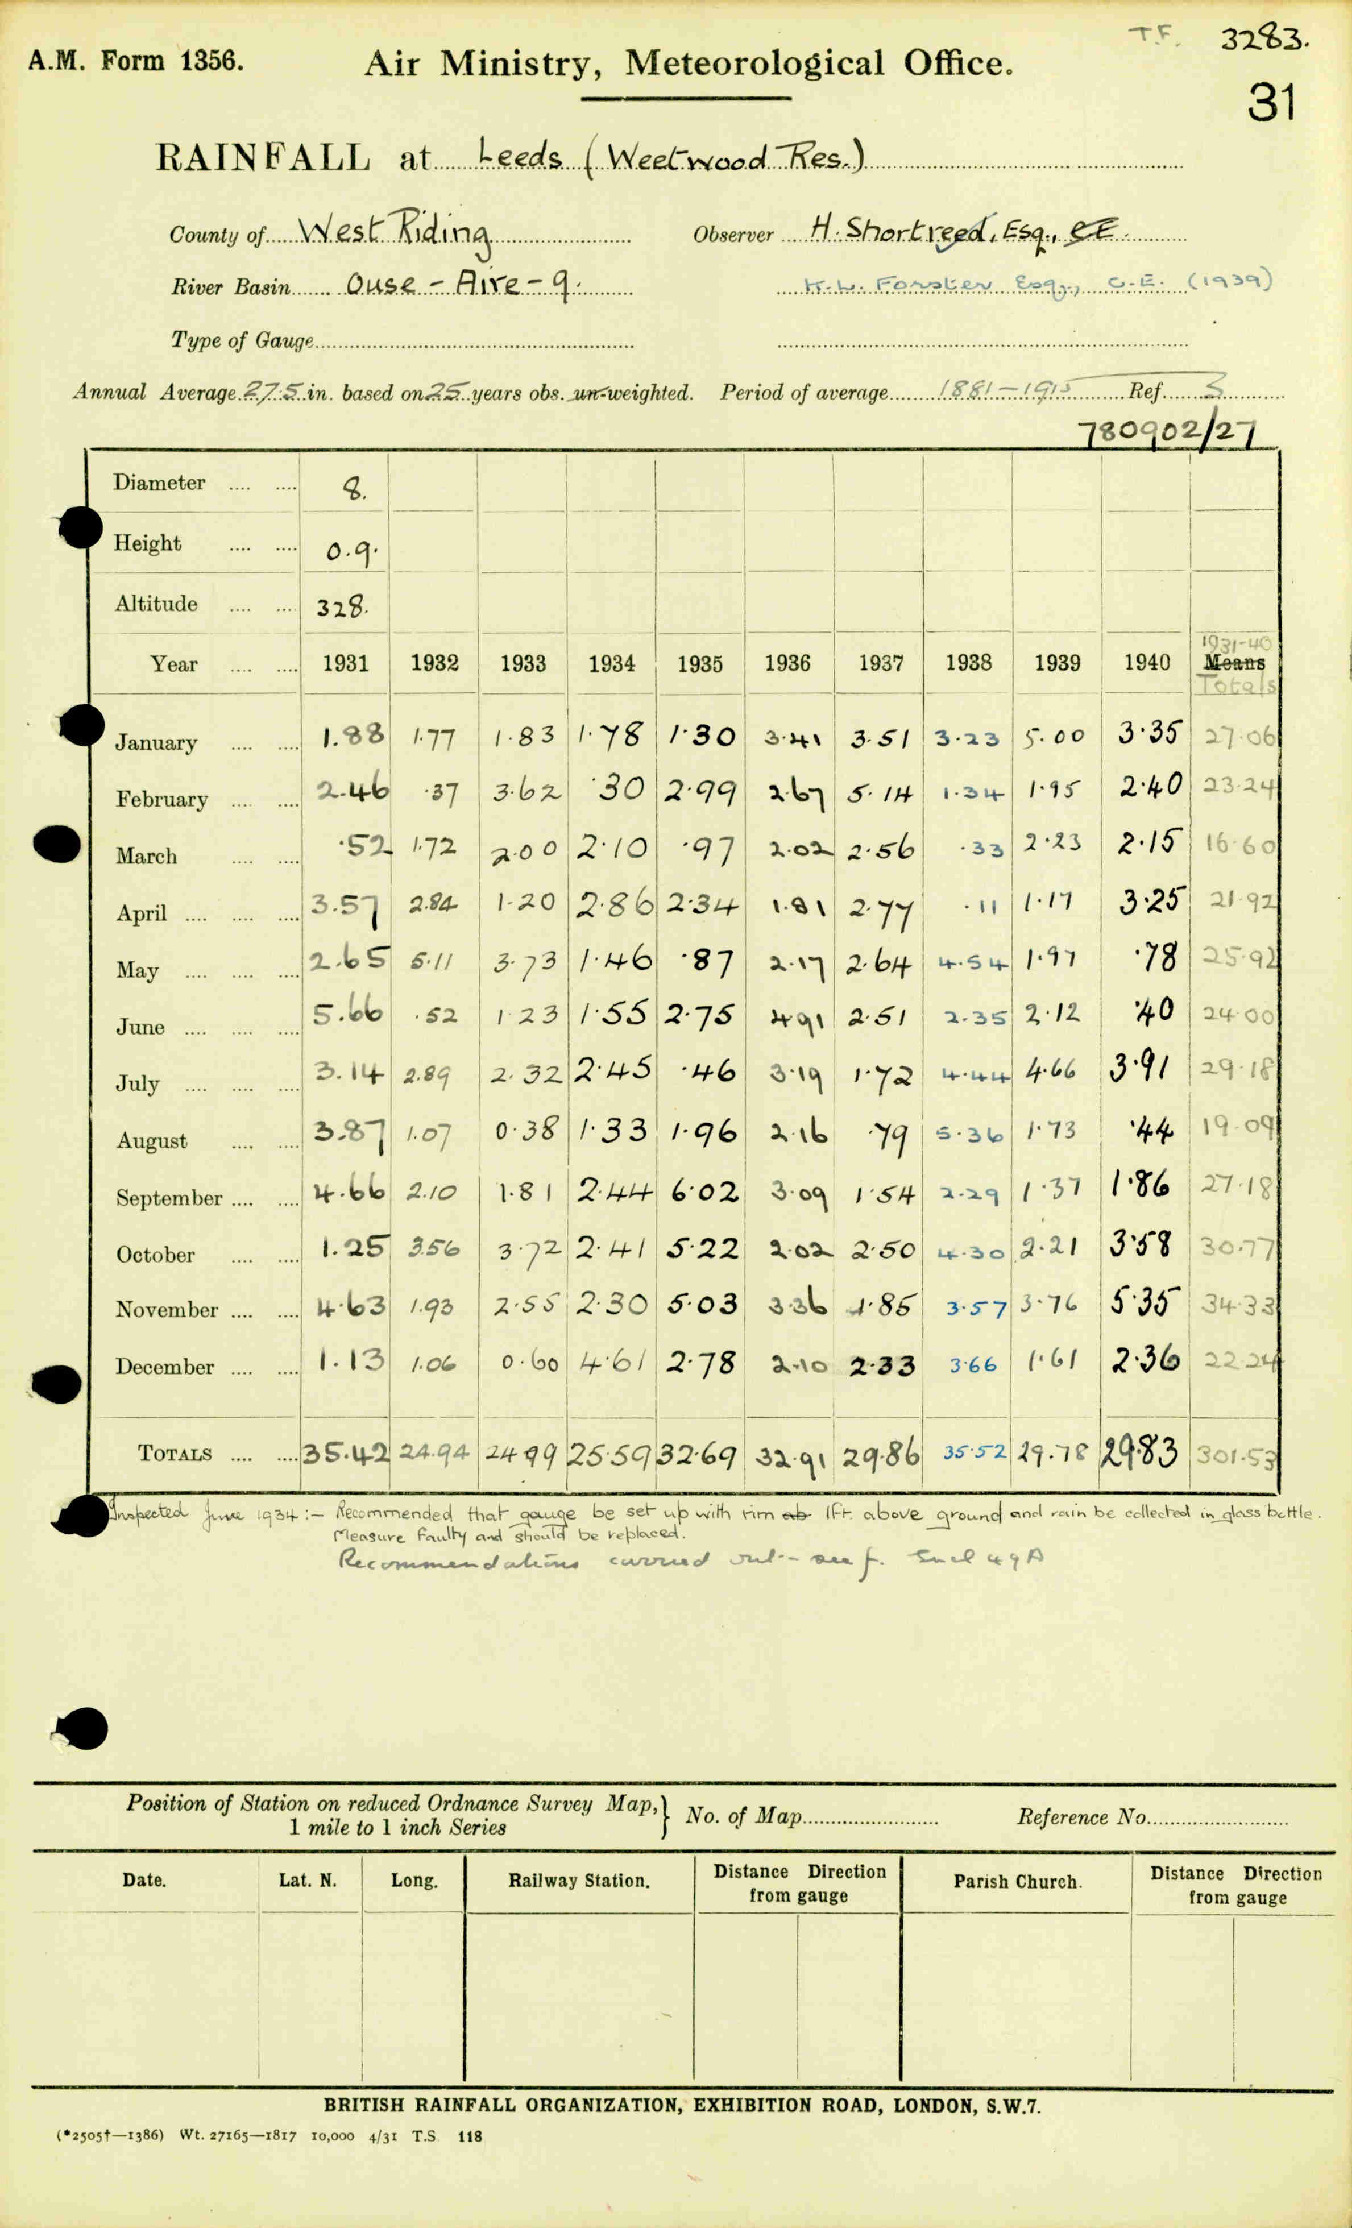 T.F. 3283.
A.M. Form 1356. Air Ministry, Meteorological Office.
31
RAINFALL at Leeds (Weetwood Res.)
County of West Riding Observer H. Shortreed, Esq., CE.
River Basin Ouse - Aire - 9. K.L. Forster Esq., C.E. (1939)
Type of Gauge
Annual Average 27.5 in. based on 25 years obs. un-weighted. Period of average 1881-1915 Ref. S
780902/27
Diameter 8.
Height 0.9.
Altitude 328.
1931-40
Year 1931 1932 1933 1934 1935 1936 1937 1938 1939 1940 Means
Totals
January 1.88 1.77 1.83 1.78 1.30 3.41 3.51 3.23 5.00 3.35 27.06
February 2.46 .37 3.62 .30 2.99 2.67 5.14 1.34 1.95 2.40 23.24
March .52 1.72 2.00 2.10 .97 2.02 2.56 .33 2.23 2.15 16.60
April 3.57 2.84 1.20 2.86 2.34 1.81 2.77 .11 1.17 3.25 21.92
May 2.65 5.11 3.73 1.46 .87 2.17 2.64 4.54 1.97 .78 25.92
June 5.66 .52 1.23 1.55 2.75 4.91 2.51 2.35 2.12 .40 24.00
July 3.14 2.89 2.32 2.45 .46 3.19 1.72 4.44 4.66 3.91 29.18
August 3.87 1.07 0.38 1.33 1.96 2.16 .79 5.36 1.73 .44 19.09
September 4.66 2.10 1.81 2.44 6.02 3.09 1.54 2.29 1.37 1.86 27.18
October 1.25 3.56 3.72 2.41 5.22 2.02 2.50 4.30 2.21 3.58 30.77
November 4.63 1.93 2.55 2.30 5.03 3.36 1.85 3.57 3.76 5.35 34.33
December 1.13 1.06 0.60 4.61 2.78 2.10 2.33 3.66 1.61 2.36 22.24
TOTALS 35.42 24.94 24.99 25.59 32.69 32.91 29.86 35.52 29.78 29.83 301.53
Inspected June 1934:- Recommended that gauge be set up with rim ab 1ft above ground and rain be collected in glass bottle.
Measure faulty and should be replaced.
Recommendations carried out - see f. Encl 49A
Position of Station on reduced Ordnance Survey Map,} No. of Map Reference No.
1 mile to 1 inch Series
Date. Lat. N. Long. Railway Station. Distance Direction from gauge Parish Church. Distance Direction from gauge
BRITISH RAINFALL ORGANIZATION, EXHIBITION ROAD, LONDON, S.W.7.
(*2505†—1386) Wt. 27165—1817 10,000 4/31 T.S. 118